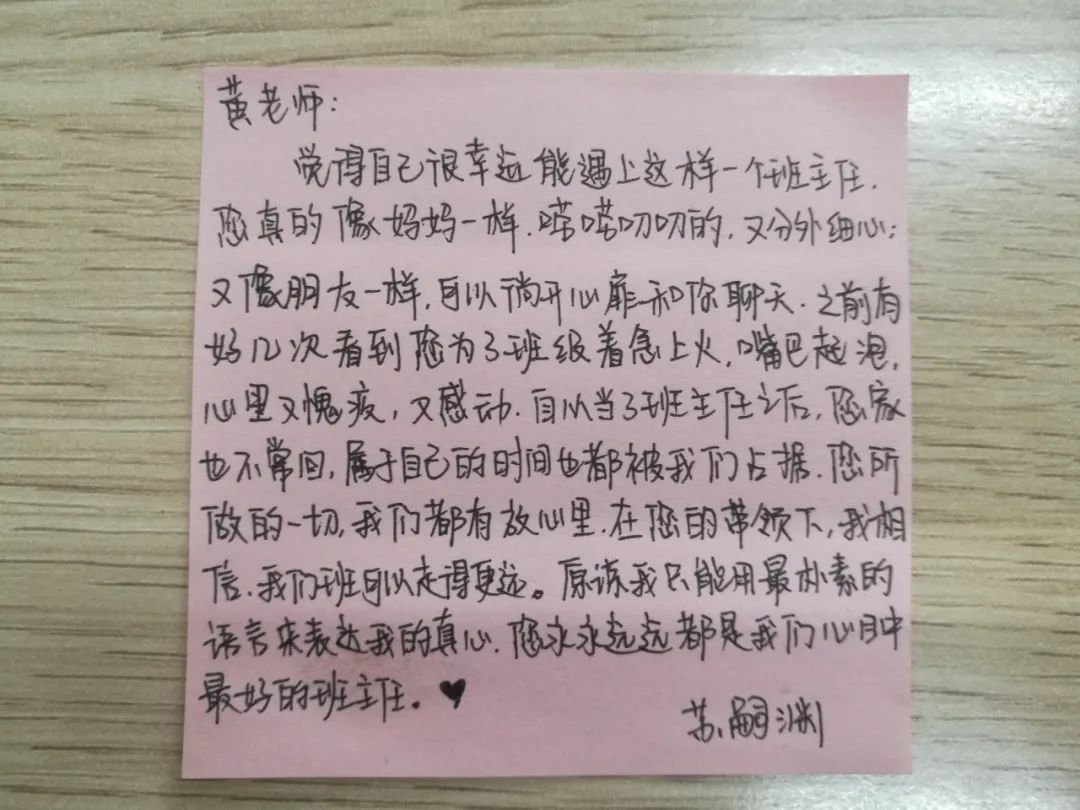 黄老师：
觉得自己很幸运能遇上这样一个班主任.
您真的像妈妈一样.唠唠叨叨的,又分外细心;
又像朋友一样,可以徜开心扉和你聊天.之前有
好几次看到您为了班级着急上火,嘴巴起泡,
心里又愧疚,又感动.自从当了班主任之后,您家
也不常回,属于自己的时间也都被我们占据.您所
做的一切,我们都有放心里.在您的带领下,我相
信,我们班可以走得更远。原谅我只能用最朴素的
语言来表达我的真心.您永永远远都是我们心目中
最好的班主任。♥
苏嗣渊